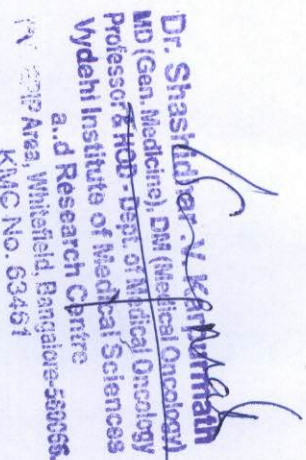 Dr. Shashidhar. V. Karpurmath
MD (Gen. Medicine), DM (Medical Oncology)
Professor & HOD - Dept. of Medical Oncology
Vydehi Institute of Medical Sciences
a.d Research Centre
Area, Whitefield, Bangalore-560066.
KMC No. 63461